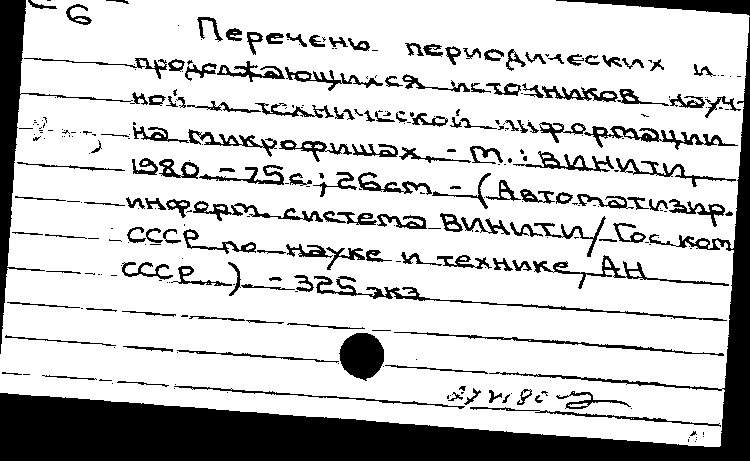 6
Перечень периодических и
продолжающихся источников науч-
ной и технической информации
на микрофишах. - М.: ВИНИТИ,
1980. - 75с.; 26см. - (Автоматизир.
информ. система ВИНИТИ/Гос. ком
СССР по науке и технике, АН
СССР). - 325 экз